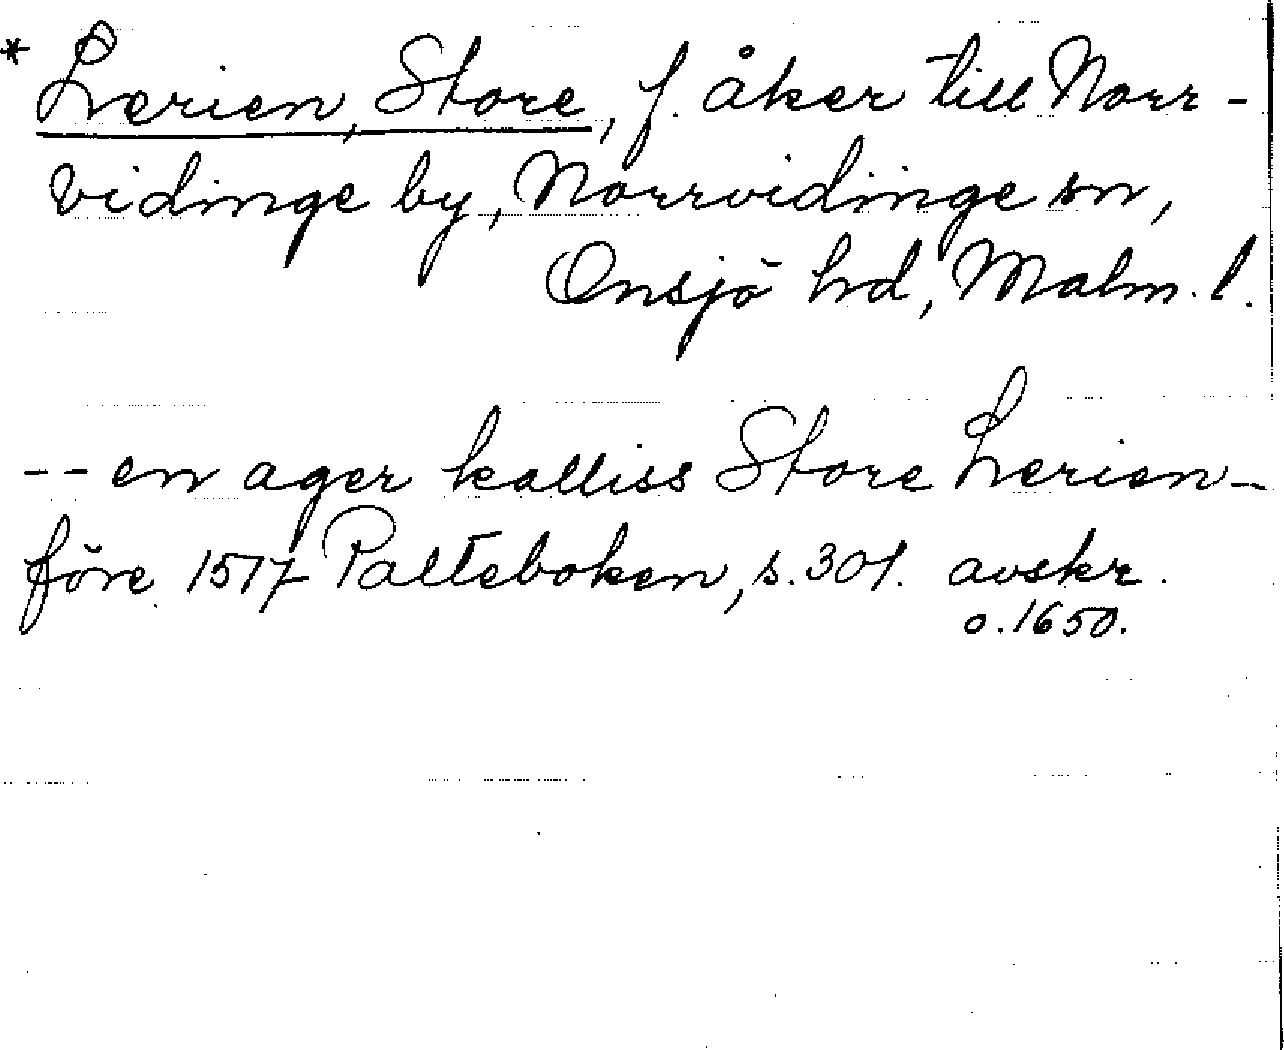 * Lerien, Store, f. åker till Norr-
vidinge by, Norrvidinge sn,
Onsjö hd, Malm. l.
-- en ager kalliss Store Lerien -
före 1517 Palteboken, s. 301. avskr.
o. 1650.